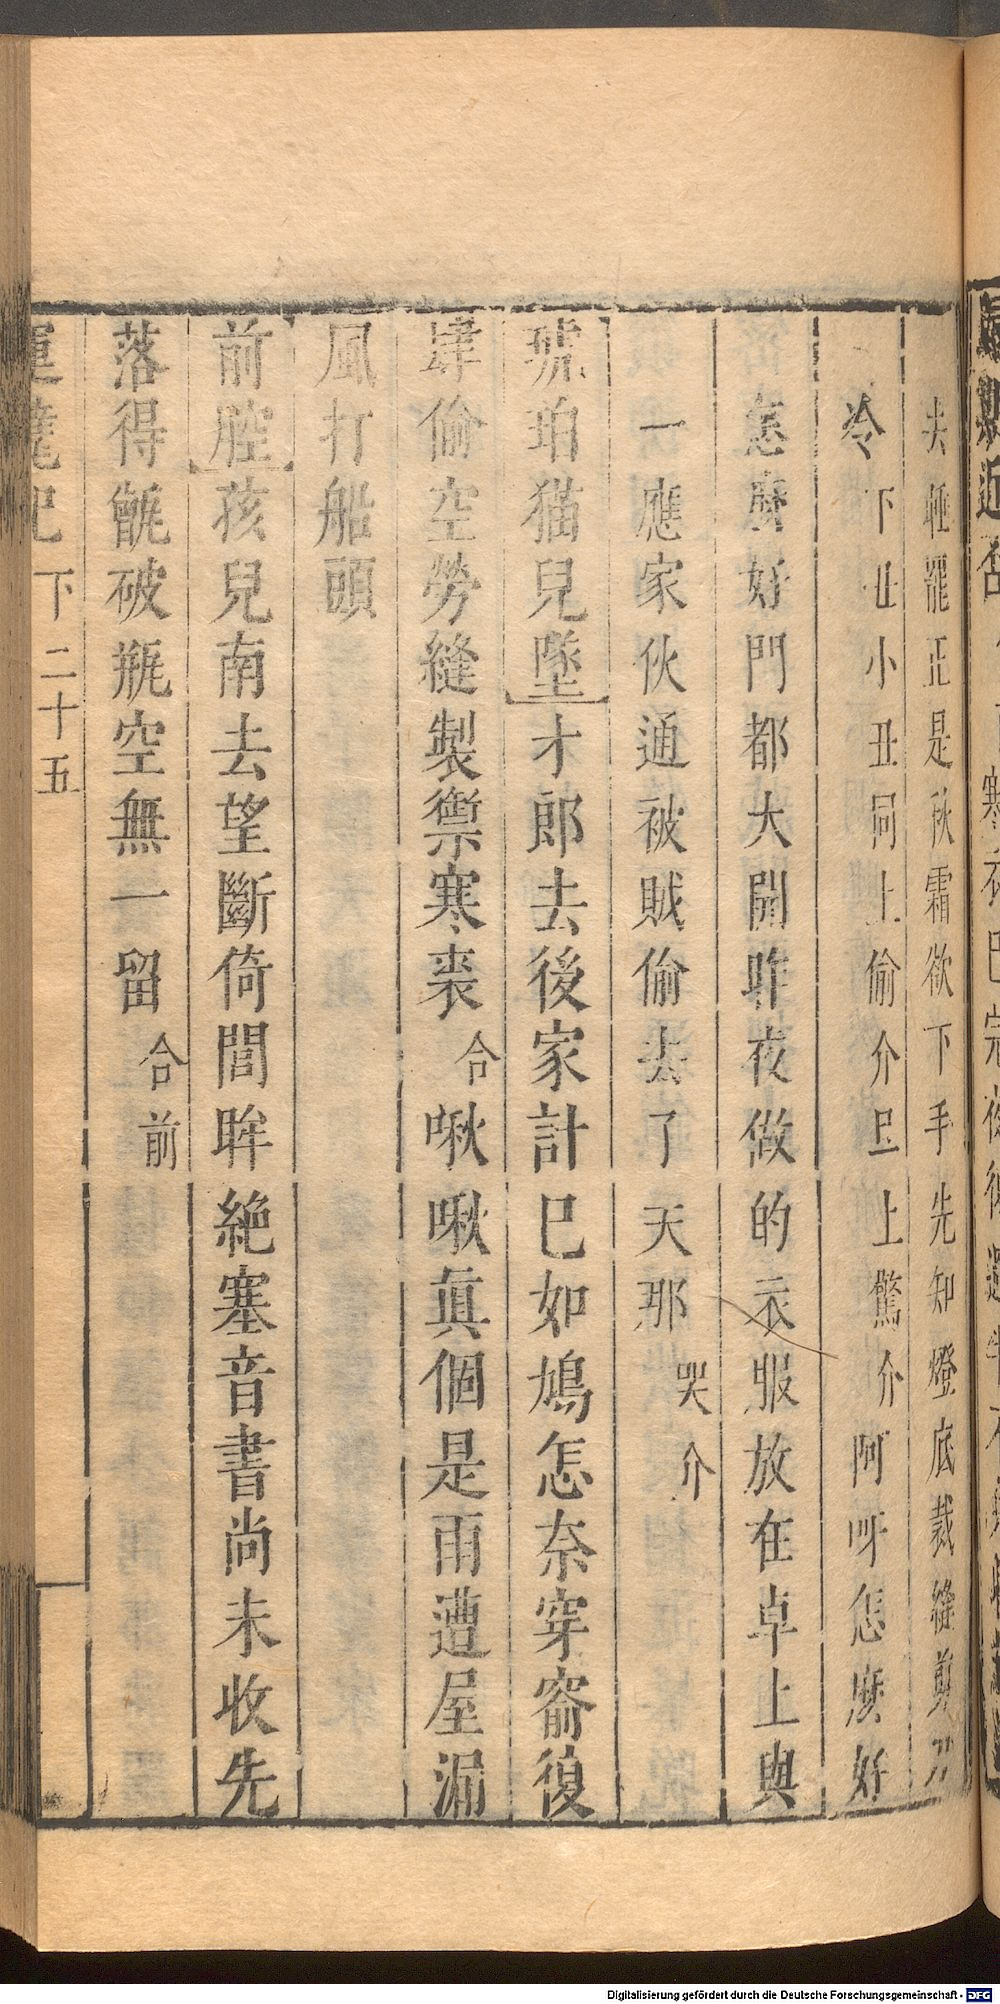 去睡罷正是秋霜欲下手先知燈底裁縫剪刀
冷 下 丑小丑同上偷介旦上驚介 阿呀怎麽好
怎麽好門都大開昨夜做的衣服放在卓上與
一應家伙通被賊偷去了天那 哭介
琥珀猫兒墜 才郎去後家計已如鳩怎奈穿窬復
肆偷空勞縫製禦寒裘 合 啾啾眞個是雨遭屋漏
風打船頭
前腔 孩兒南去望斷倚閭眸絶塞音書尚未收先
落得甑破瓶空無一留 合前
下 二十五
Digitalisierung gefördert durch die Deutsche Forschungsgemeinschaft - DFG